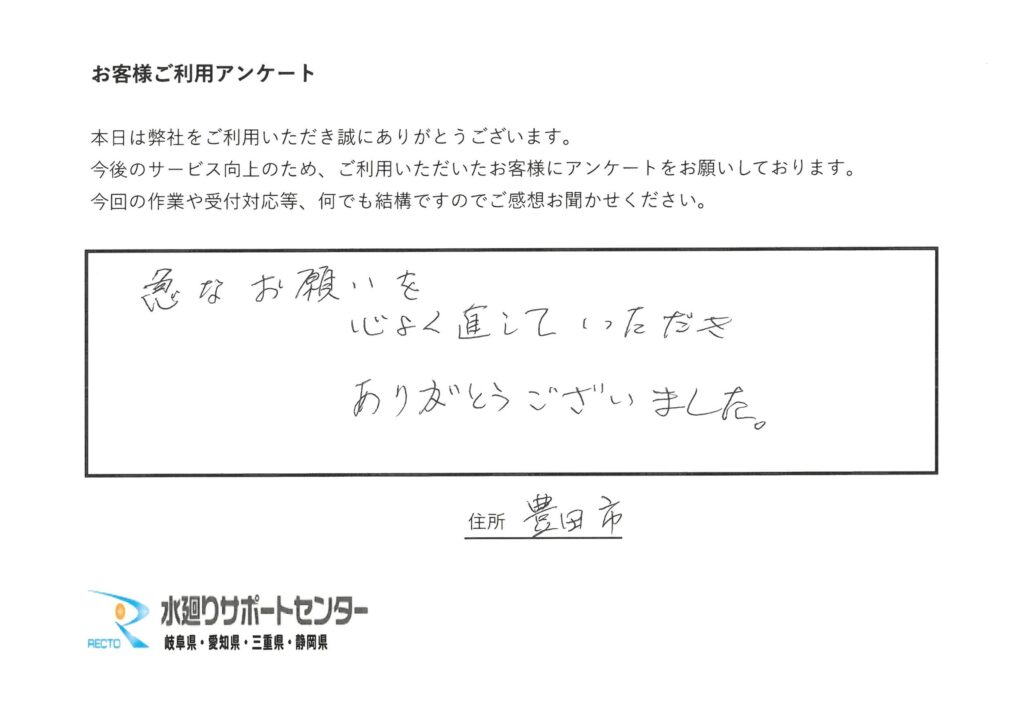 お客様ご利用アンケート
本日は弊社をご利用いただき誠にありがとうございます。
今後のサービス向上のため、ご利用いただいたお客様にアンケートをお願いしております。
今回の作業や受付対応等、何でも結構ですのでご感想お聞かせください。
急なお願いを
心よく進していただき
ありがとうございました。
住所 豊田市
水廻りサポートセンター
RECTO 岐阜県・愛知県・三重県・静岡県